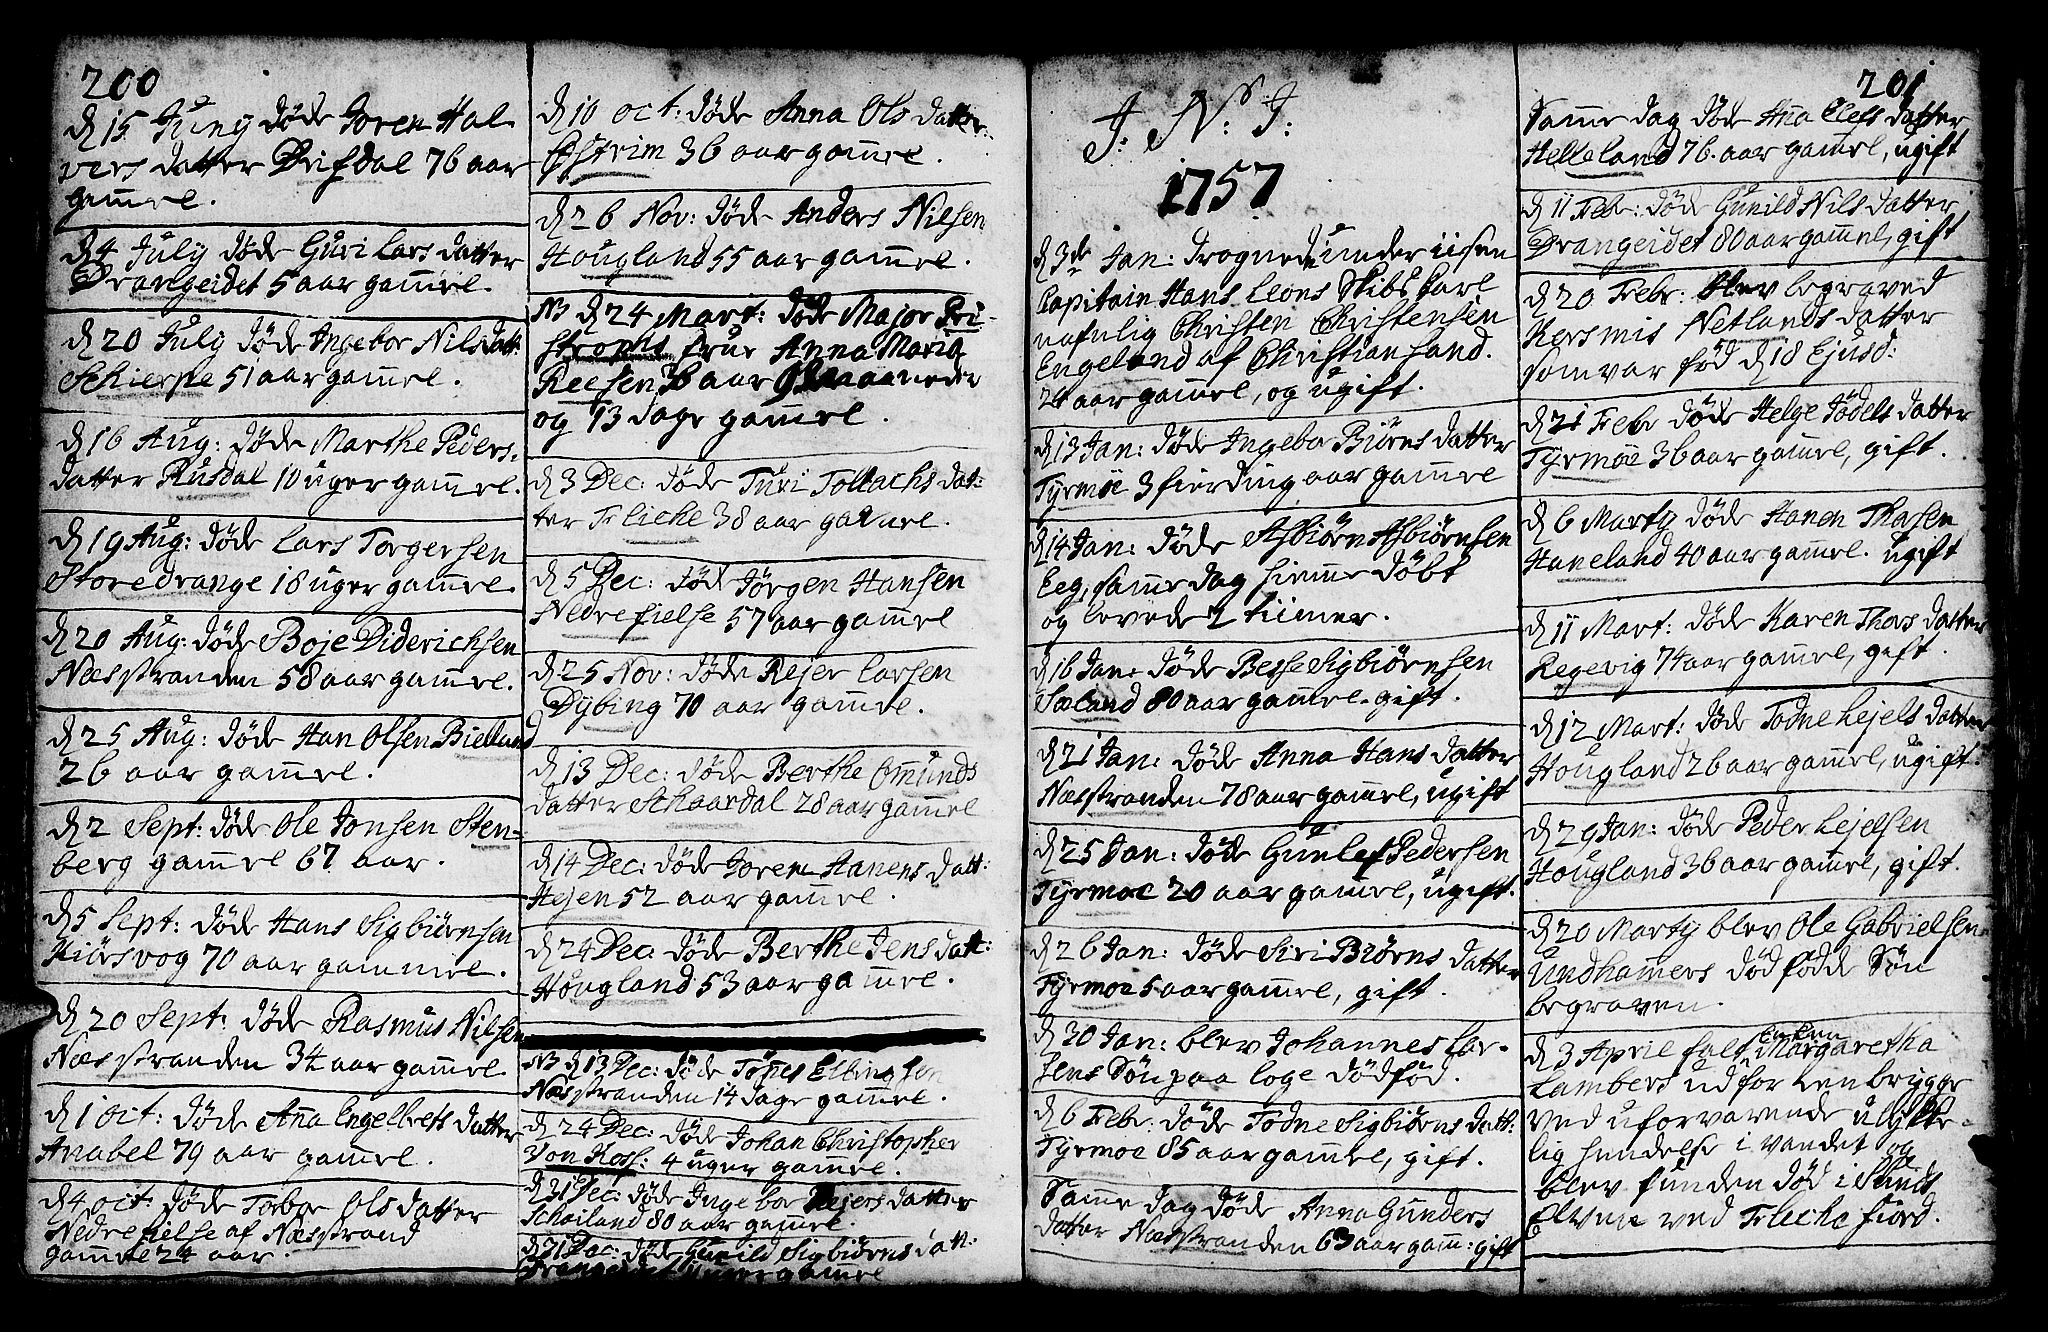 200
d 15 Juny døde Joren Hal-
vers datter Drifdal 76 aar
gam̄el.
d 4 July døde Guri Lars datter
Drangeidet 5 aar gam̄el.
d 20 July døde Ingebor Nils datt:
Schierpe 51 aar gam̄el.
d 16 Aug: døde Marthe Peders-
datter Rusdal 10 uger gam̄el.
d 19 Aug: døde Lars Torgersen
Storedrange 18 uger gam̄el.
d 20 Aug: døde Boje Diderichsen
Næsstranden 58 aar gam̄el.
d 25 Aug: døde Han Olsen Bielland
26 aar gam̄el.
d 2 Sept: døde Ole Jonsen Sten-
berg gam̄el 67 aar.
d 5 Sept: døde Hans Sigbiørnsen
Kiørsvog 70 aar gammel.
d 20 Sept: døde Rasmus Nilsen
Næsstranden 34 aar gam̄el.
d 1 oct: døde An̄a Engelbrets datter
Anabel 79 aar gam̄el.
d 4 oct: døde Torbor Ols datter
Nedre fielse af Næsstrand
gam̄el 24 aar.
d 10 oct: døde Anna Ols datter
Østrim 36 aar gam̄el.
d 26 Nov: døde Anders Nilsen
Hougland 55 aar gam̄el.
NB d 24 Mart: døde Major Pri-
strophs frue Anna Maria
Reesen 36 aar maaneder
og 13 dage gam̄el.
d 3 Dec: døde Turi Tollachs dat-
ter Fleche 38 aar gam̄el.
d 5 Dec: død Jørgen Hansen
Nedre fielse 57 aar gam̄el
d 25 Nov: døde Rejer Larsen
Dybing 70 aar gam̄el.
d 13 Dec: døde Berthe Om̄unds
datter Schaardal 28 aar gam̄el
d 14 Dec: døde Joren Hanens datt:
Hejen 52 aar gam̄el.
d 24 Dec: døde Berthe Jens datt:
Hougland 53 aar gam̄el.
NB d 13 Dec: døde Tønes Ellingsen
Næsstranden 14 dage gam̄el.
d 24 Dec: død Johan Christopher
Von Koss: 4 uger gam̄el.
d 31 Dec: døde Ingebor Rejers datter
Schoiland 80 aar gam̄el.
d 31 Dec: døde Gunild Sigbiørns datt:
Drangeidet uger gam̄el
J: N: J:
1757
d 3de Jan: drognede under iisen
Capitain Hans Leons Skibs Karl
nafnlig Christen Christensen
Engeland af Christiansand.
24 aar gam̄el, og ugift.
d 13 Jan: døde Ingebor Biørns datter
Tyrmoe 3 fierding aar gam̄el
d 14 Jan: døde Asbiørn Asbiørnsen
Eeg, sam̄e dag hiem̄e døbt
og levede 2 tiimer.
d 16 Jan: døde Besse Sigbiørnsen
Sæland 80 aar gam̄el. gift.
d 21 Jan: døde Anna Hans datter
Næsstranden 78 aar gam̄el, ugift
d 25 Jan: døde Gunlef Pedersen
Tyrmoe 20 aar gam̄el, ugift.
d 26 Jan: døde Siri Biørns datter
Tyrmoe 5 aar gam̄el, gift.
d 30 Jan: blev Johannes Lar-
sens Søn paa Loge dødfød.
d 6 Febr: døde Todne Sigbiørns datt:
Tyrmoe 85 aar gam̄el, gift.
Sam̄e dag døde Anna Gunders
datter Næsstranden 63 aar gam̄: gift
201
Sam̄e dag døde An̄a Elefs datter
Helleland 76 aar gam̄el, ugift
d 11 Febr: døde Gunild Nils datter
Drangeidet 80 aar gam̄el, gift
d 20 Febr: blev begraved
Kersmis Netlands datter
som var fød d 18 Ejusd:
d 21 Febr døde Helge Tødels datter
Tyrmoe 36 aar gam̄el, gift.
d 6 Marty døde Hanen Thosen
Haneland 40 aar gam̄el. ugift
d 11 Mart: døde Karen Thors datter
Regevig 74 aar gam̄el, gift.
d 12 Mart: døde Todne Lejels datter
Hougland 26 aar gam̄el, ugift.
d 29 Jan: døde Peder Lejelsen
Hougland 36 aar gam̄el, gift.
d 20 Marty blev Ole Gabrielsen
Undham̄ers død fødde Søn
begraven.
d 3 April falt Enken Margaretha
Lambers ud for den brygge
ved uforvarende ulykke-
lig hendelse i vandet og
blev funden død i Sunds
Elven ved Fleche fiord.